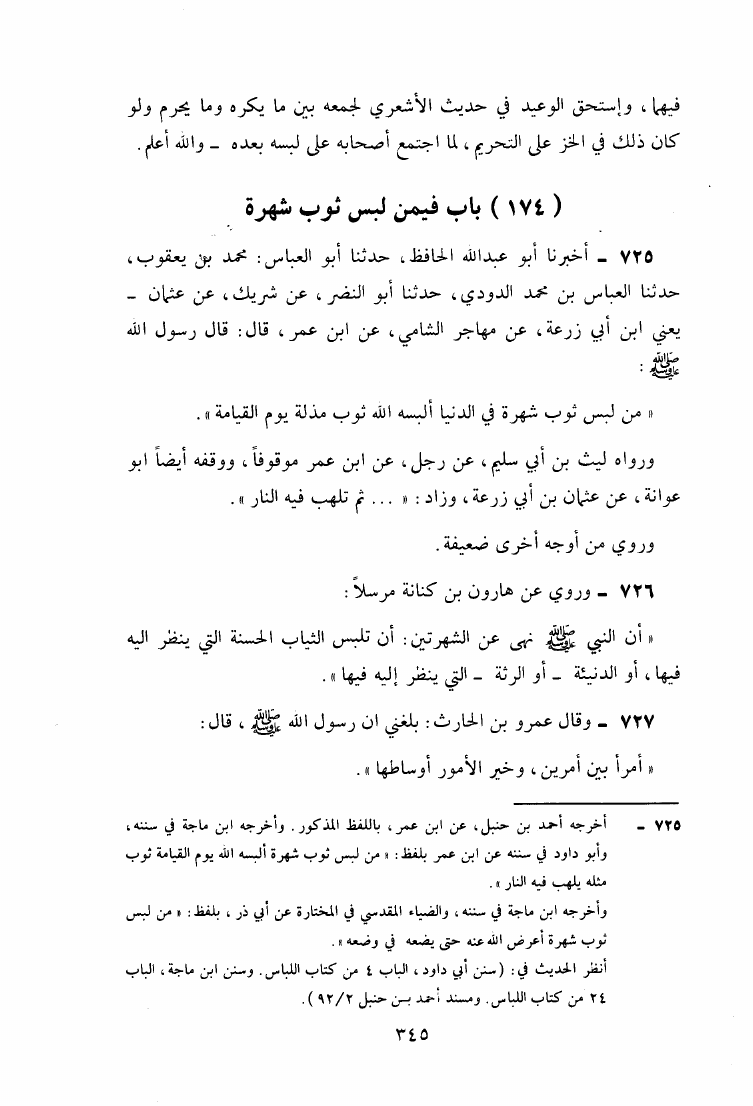 فيهما، وإستحق الوعيد في حديث الأشعري لجمعه بين ما يكره وما يحرم ولو
كان ذلك في الخز على التحريم، لما اجتمع أصحابه على لبسه بعده ـ والله أعلم.
( ١٧٤ ) باب فيمن لبس ثوب شهرة
٧٢٥ ـ أخبرنا أبو عبدالله الحافظ، حدثنا أبو العباس: محمد بن يعقوب،
حدثنا العباس بن محمد الدودي، حدثنا أبو النضر، عن شريك، عن عثمان ـ
يعني ابن أبي زرعة، عن مهاجر الشامي، عن ابن عمر، قال: قال رسول الله
ﷺ :
« من لبس ثوب شهرة في الدنيا ألبسه الله ثوب مذلة يوم القيامة ».
ورواه ليث بن أبي سليم، عن رجل، عن ابن عمر موقوفاً، ووقفه أيضاً ابو
عوانة، عن عثمان بن أبي زرعة، وزاد: « ... ثم تلهب فيه النار ».
وروي من أوجه أخرى ضعيفة.
٧٢٦ ـ وروي عن هارون بن كنانة مرسلاً:
« أن النبي ﷺ نهى عن الشهرتين: أن تلبس الثياب الحسنة التي ينظر اليه
فيها، أو الدنيئة ـ أو الرثة ـ التي ينظر إليه فيها ».
٧٢٧ ـ وقال عمرو بن الحارث: بلغني ان رسول الله ﷺ ، قال:
« أمرأ بين أمرين، وخير الأمور أوساطها ».
٧٢٥ ـ أخرجه أحمد بن حنبل، عن ابن عمر، باللفظ المذكور. وأخرجه ابن ماجة في سننه،
وأبو داود في سننه عن ابن عمر بلفظ: « من لبس ثوب شهرة ألبسه الله يوم القيامة ثوب
مثله يلهب فيه النار ».
وأخرجه ابن ماجة في سننه، والضياء المقدسي في المختارة عن أبي ذر ، بلفظ: « من لبس
ثوب شهرة أعرض الله عنه حتى يضعه في وضعه ».
أنظر الحديث في: (سنن أبي داود، الباب ٤ من كتاب اللباس. وسنن ابن ماجة، الباب
٢٤ من كتاب اللباس. ومسند أحمد بـن حنبل ٩٢/٢).
٣٤٥